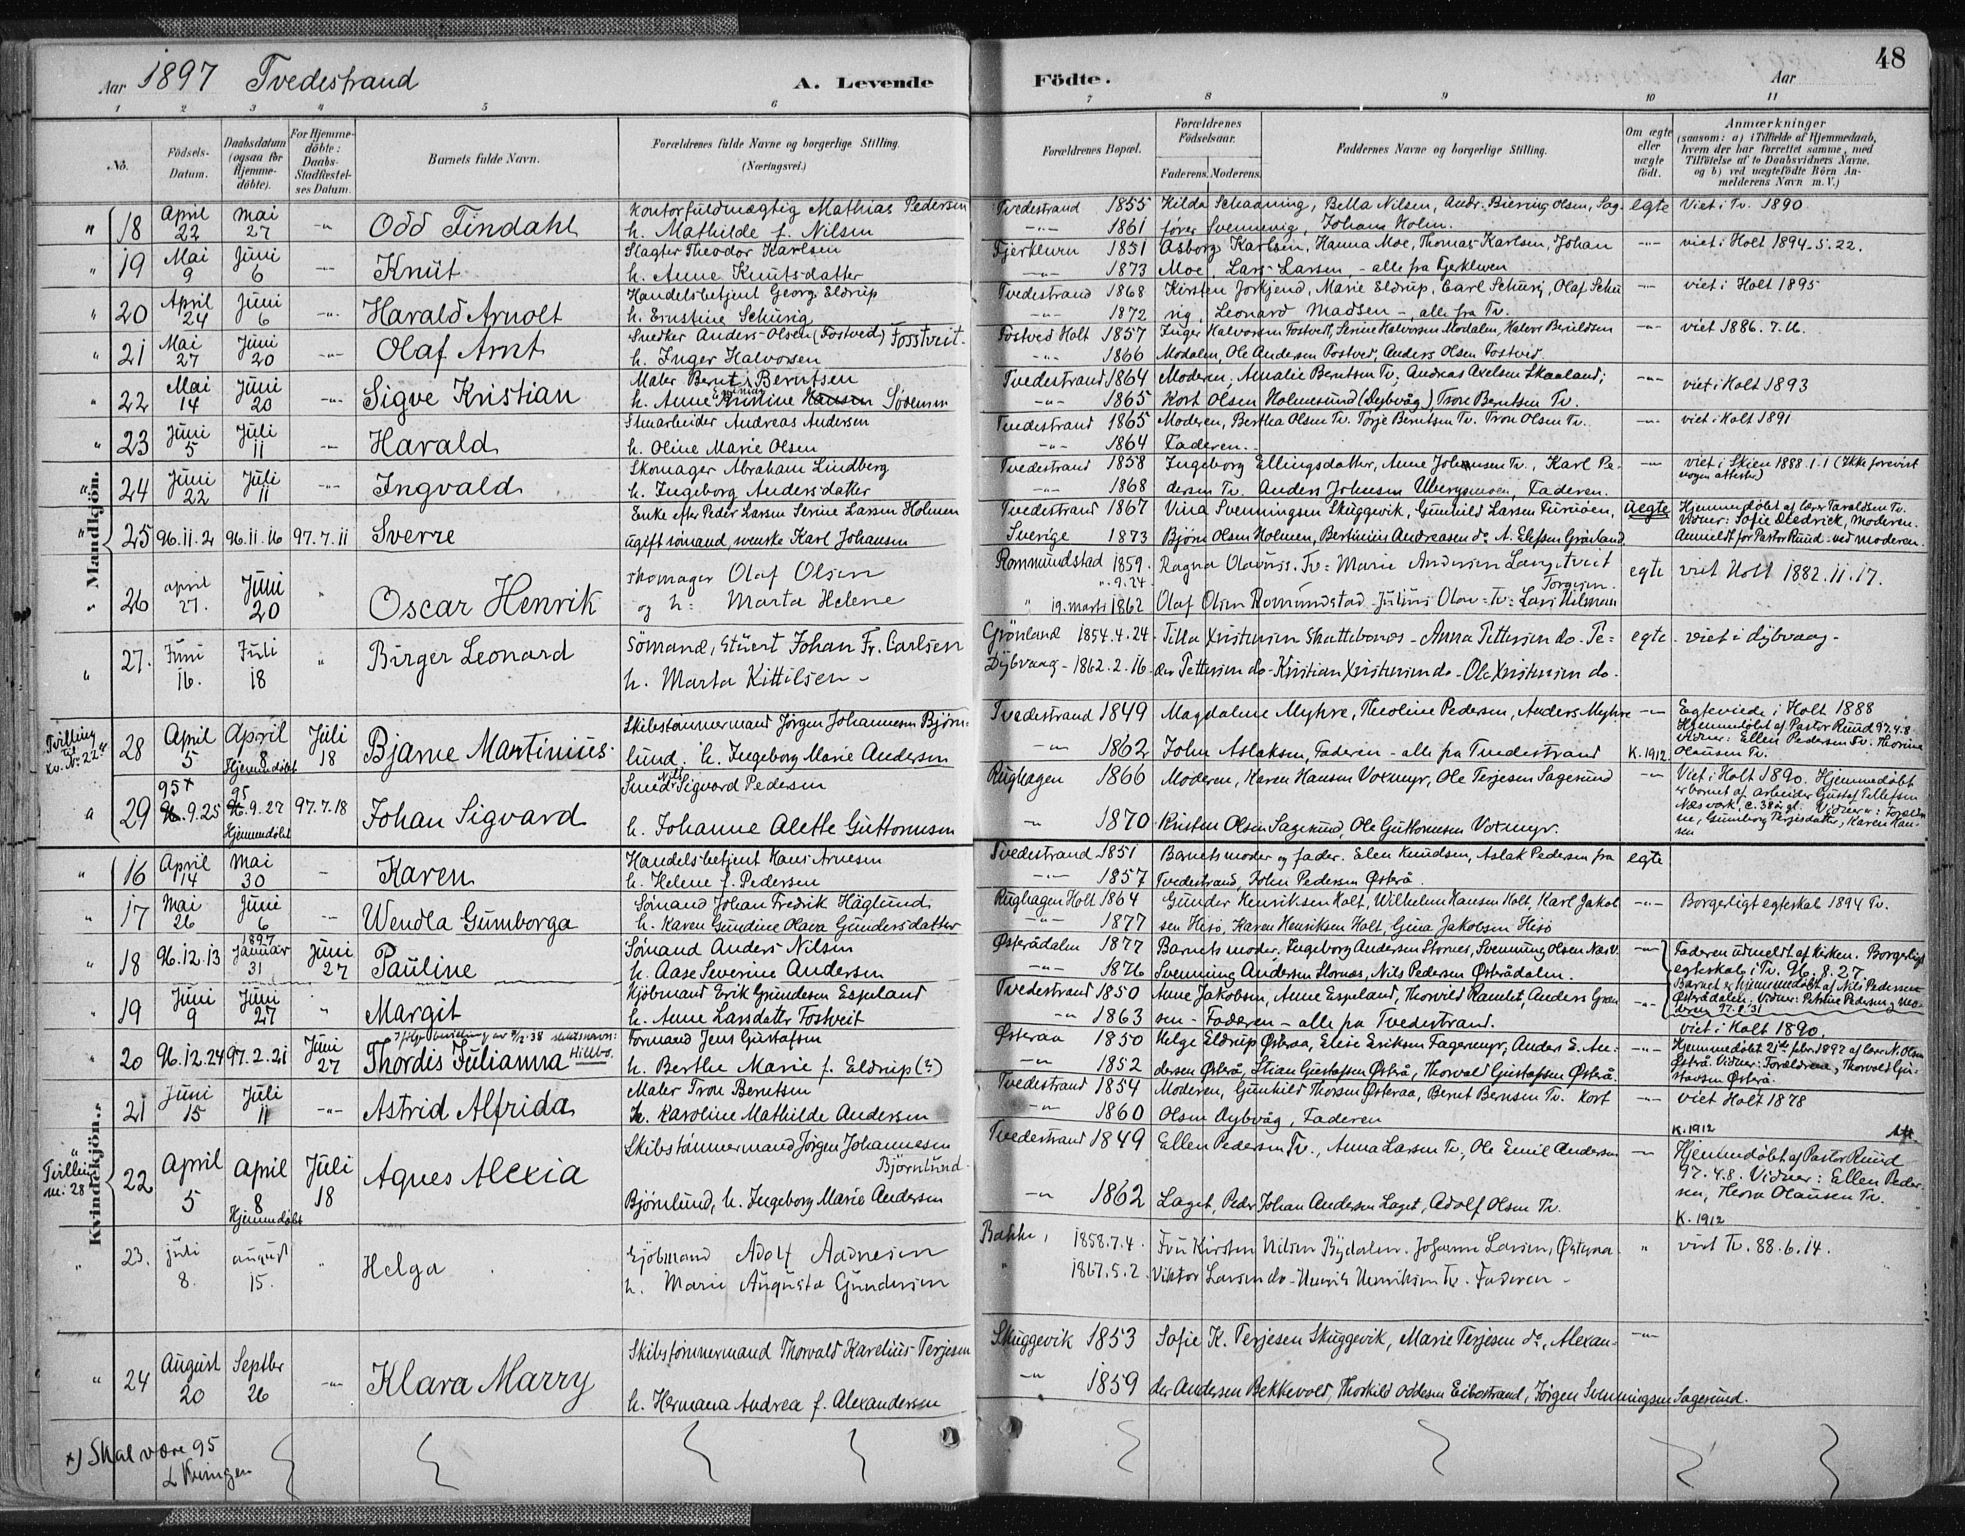 Aar 1897 Tvedestrand A. Levende Födte. Aar 48
1 2 3 4 5 6 7 8 9 10 11
No. Födsels-Datum. Daabsdatum (ogsaa for Hjemmedöbte). For Hjemmedöbte: Daabs-Stadfæstelses Datum. Barnets fulde Navn. Forældrenes fulde Navne og borgerlige Stilling. (Næringsvei.) Forældrenes Bopæl. Forældrenes Födselsaar. Faderens. Moderens. Faddernes Navne og borgerlige Stilling. Om ægte eller uægte födt. Anmærkninger (saasom: a) i Tilfælde af Hjemmedaab, hvem der har forrettet samme, med Tilföielse af to Daabsvidners Navne. og b) ved uægtefödte Börn Anmelderens Navn m. V.)
Mandkjön.
" 18 April 22 Mai 27 -"- Odd Tindahl Kontorfuldmægtig Mathias Pedersen Tvedestrand 1855 Hilda Schaaning, Bella Nilsen, Andr. Biering Olsen, Sag- egte Viet i Tv. 1890
h. Mathilde f. Nilsen -"- 1861 fører Svennevig, Johana Holm.
" 19 Mai 9 Juni 6 -"- Knut Slagter Theodor Karlsen Fjerkleiven 1851 Asborg Karlsen, Hanna Moe, Thomas Karlsen, Johan -"- viet i Holt 1894-5.22.
h. Anne Knutsdatter -"- 1873 Moe, Lars Larsen, - alle fra Fjerkleven
" 20 April 24 Juni 6 -"- Harald Arnolt Handelsbetjent Georg Eldrup Tvedestrand 1868 Kirsten Jorkjend, Marie Eldrup, Carl Schurig, Olaf Schu -"- viet i Holt 1895
h. Ernstine Schurig -"- 1872 rig, Leonard Madsen -, alle fra Tv.
" 21 Mai 27 Juni 20 -"- Olaf Arnt Snedker Anders Olsen (Fostved) Fosstveit. Fostved Holt 1857 Inger Halvorsen Fostvedt, Serine Halvorsen Modalen, Halvor Beruldsen -"- viet 1886.7.16.
h. Inger Halvorsen -"- 1866 Modalen, Ole Andersen Fostved, Anders Olsen Fostved.
" 22 Mai 14 Juni 20 -"- Sigve Kristian Maler Bernt Berntsen Tvedestrand 1864 Moderen, Amalie Berntsen Tv., Andreas Axelsen Skaaland; -"- viet i Holt 1893
h. Anne Kristine Hansen -"- 1865 Kort Olsen Holmesund (Dybvåg) Tron Berntsen Tv.
" 23 Juni 5 Juli 11 -"- Harald Stuarbeider Andreas Andersen Tvedestrand 1865 Moderen, Bertha Olsen Tv. Torje Berntsen Tv. Tron Olsen Tv. -"- viet i Holt 1891
h. Oline Marie Olsen -"- 1864 Faderen.
" 24 Juni 22 Juli 11 -"- Ingvald Skomager Abraham Lindberg Tvedestrand 1858 Ingeborg Ellingsdatter, Anne Johansen Tv., Karl Pe- -"- viet i Skien 1888.1.1 (Ikke forevist nogen attester)
h. Ingeborg Andersdatter -"- 1868 dersen Tv. Anders Johnsen Ubergsmoen, Faderen.
" 25 96.11.2 96.11.16 97.7.11 Sverre Enke efter Peder Larsen Serine Larsen Holmen Tvedestrand 1867 Vina Svenningsen Skuggevik, Gunhild Larsen Furuøen, uegte Hjemmedøbt af lærer Taraldsen Tv. Vidner: Sofie Diedrick, Moderen.
ugift sømand, svenske Karl Johansen Sverige 1873 Bjørn Olsen Holmen, Bertinius Andreasen do. A. Elefsen Grønland. Anmeldt for Pastor Ruud ved moderen.
" 26 april 27. Juni 20 " Oscar Henrik Skomager Olaf Olsen Rommundstad 1859. ".9.24 Ragna Olavius. Tv= Marie Andersen Langetveit egte viet Holt 1882.11.17.
og h: Marta Helene " 19. marts 1862 Olaf Olsen Romundstad - Julius Olav= Tv= Lars Hilmian Torgersen
" 27. Juni 16. Juli 18 " Birger Leonard Sömand, Stüert Johan Fr. Carlsen Grönland 1854.4.24 - Tilla Kristensen Skattebonæs - Anna Pettersen do - Pe= egte. viet i dybvaag -
h. Marta Kittilsen - Dybvaag - 1862.2.16. der Pettersen do - Kristian Kristensen do - Ole Kristensen do -
Tvilling til Kv. Nr. 22. 28 April 5 April 8 Hjemmedøbt Juli 18 Bjarne Martinius Skibstømmermand Jørgen Johannesen Bjørn- Tvedestrand 1849 Magdalene Myhre, Theoline Pedersen, Anders Myhre -"- Egteviede i Holt 1888
lund. h. Ingeborg Marie Andersen -"- 1862 John Aslaksen, Faderen - alle fra Tvedestrand K. 1912. Hjemmedøbt af Pastor Ruud 97.4.8. Vidner: Ellen Pedersen Tv. Thorine Olausen Tv.
a 29 95+ 96.9.25 95 96.9.27 Hjemmedøbt 97.7.18 Johan Sigvard Smed Nils Sigvard Pedersen Rughagen 1866 Moderen, Karen Hansen Voxmyr, Ole Terjesen Sagesund -"- Viet i Holt 1890. Hjemmedøbt
h. Johanne Alette Guttormsen -"- 1870 Kristen Olsen Sagesund, Ole Guttormsen Voxmyr. er barnet af arbeider Gustaf Tellefsen Næs værk, c. 38 år gl. Vidner: Forældrene, Gunborg Terjesdatter, Karen Hansen
Kvindekjön.
" 16 April 14 Mai 30 - Karen Handelsbetjent Hans Arnesen Tvedestrand 1851 Barnets moder og fader. Elen Knudsen, Aslak Pedersen fra egte
h. Helene f. Pedersen -"- 1857 Tvedestrand, John Pedersen Østerå
" 17 Mai 26 Juni 6 -"- Wendla Gumborga Sømand Johan Fredrik Häglund Rughagen Holt 1864 Gunder Henriksen Holt, Wilhelm Hansen Holt, Karl Jakob -"- Borgerligt egteskab 1894 Tv.
h. Karen Gundine Olava Gundersdatter -"- 1877 sen Hisø, Karen Henriksen Holt, Gina Jakobsen Hisø
" 18 96.12.13 1897 Januar 31 Juni 27 Pauline Sømand Anders Nilsen Østerådalen 1877 Barnets moder, Ingeborg Andersen Stornes, Svennung Olsen Næs V. -"- Faderen udmeldt af kirken. Borgerligt egteskab i Tv. 96.8.27.
h. Aase Severine Andersen -"- 1876 Svenning Andersen Stornæs, Nils Pedersen Østerådalen. Barnet er hjemmedøbt af Nils Pedersen Østerådalen; Vidner: Petrine Pedersen, moderen 97.1.31
" 19 Juni 9 Juni 27 " Margit Kjøbmand Erik Gundersen Espeland Tvedestrand 1850 Anne Jakobsen, Anne Espeland, Thorvild Ramlet, Anders Gran -"-
h. Anne Larsdatter Fostveit -"- 1863 sen - Faderen - alle fra Tvedestrand. viet i Holt 1890.
" 20 96.12.24 97.2.21 Juni 27 Thordis Julianna Hillbo. Formand Jens Gustafsen Østeraa 1850 Helge Eldrup Østeraa, Elise Eriksen Fagermyr, Anders E. An- -"- Hjemmedøbt 21de febr. 1897 af lærer N. Olsen
h. Berthe Marie f. Eldrup (?) -"- 1852 dersen Østerå, Stian Gustafsen Østerå, Thorvald Gustafsen Østerå. Østerå. Vidner: Forældrene, Thorvald Gustavsen Østerå.
21 Juni 15 Juli 11 -"- Astrid Alfrida Maler Tron Berntsen Tvedestrand 1854 Moderen, Gunhild Thorsen Østeraa, Bernt Bernsen Tv. Kort -"- viet Holt 1878
h. Karoline Mathilde Andersen -"- 1860 Olsen Dybvåg, Faderen K. 1912
" Tvilling m. 28 22 April 5 April 8 Hjemmedøbt Juli 18 Agnes Alexia Skibstømmermand Jørgen Johannesen Bjørnlund. Tvedestrand 1849 Ellen Pedersen Tv., Anna Larsen Tv., Ole Emil Andersen -"- Hjemmedøbt af Pastor Ruud 97.4.8. Vidner: Ellen Peder-
Bjørnlund, h. Ingeborg Marie Andersen -"- 1862 Laget, Peder Johan Andersen Laget, Adolf Olsen Tv. sen, Thora Olausen Tv. K. 1912
" 23. juli 8. august 15. " Helga Kjöbmand Adolf Aadnesen Bakke, 1858.7.4. Fru Kirsten Nilsen Bydalen. Johanne Larsen, Østeraa " viet Tv. 88.6.14.
h. Marie Augusta Gundersen " 1867.5.2. Viktor Larsen do - Henrik Henriksen Tv. Faderen -
" 24 August 20 Septbr 26 -"- Klara Marry Skibstømmermand Thorvald Karelius Terjesen Skuggevik 1853 Sofie K. Terjesen Skuggevik, Marie Terjesen do., Alexan- -"-
h. Hermana Andrea f. Alexandersen -"- 1859 der Andersen Bekkevold, Thorkild Oddesen Eibostrand, Jørgen Svenningsen Sagesund.
+) Skal være 95